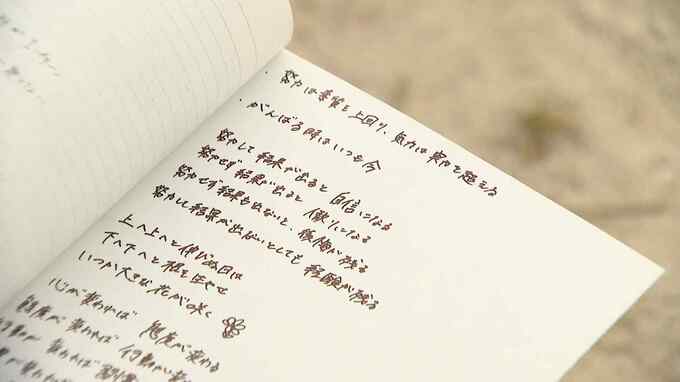 ・努力は素質を上回り、気力は実力を超える
・がんばる時はいつも今
努力して結果が出ると 自信になる
努力せず結果が出ると 傲りになる
努力せず結果も出ないと、後悔が残る
努力して結果が出ないとしても 経験が残る
上へ上へと伸びぬ日は
下へ下へと根を生やせ
いつか大きな花が咲く
心が変われば 態度が変わる
態度が変われば 行動が変
行動が変われば 習慣
が変われば